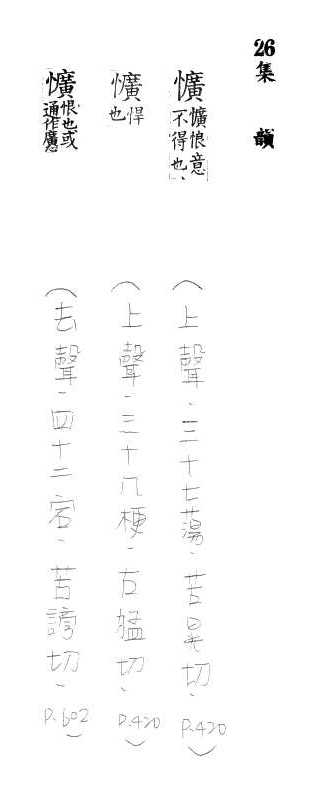 26 集韻
懭 懭悢意不得也、(上聲、三十七蕩、苦晃切、P.420)
懭 悍也 (上聲、三十八梗、古猛切、P.420)
懭 恨也或通作廣 (去聲、四十二宕、苦謗切、P.602)